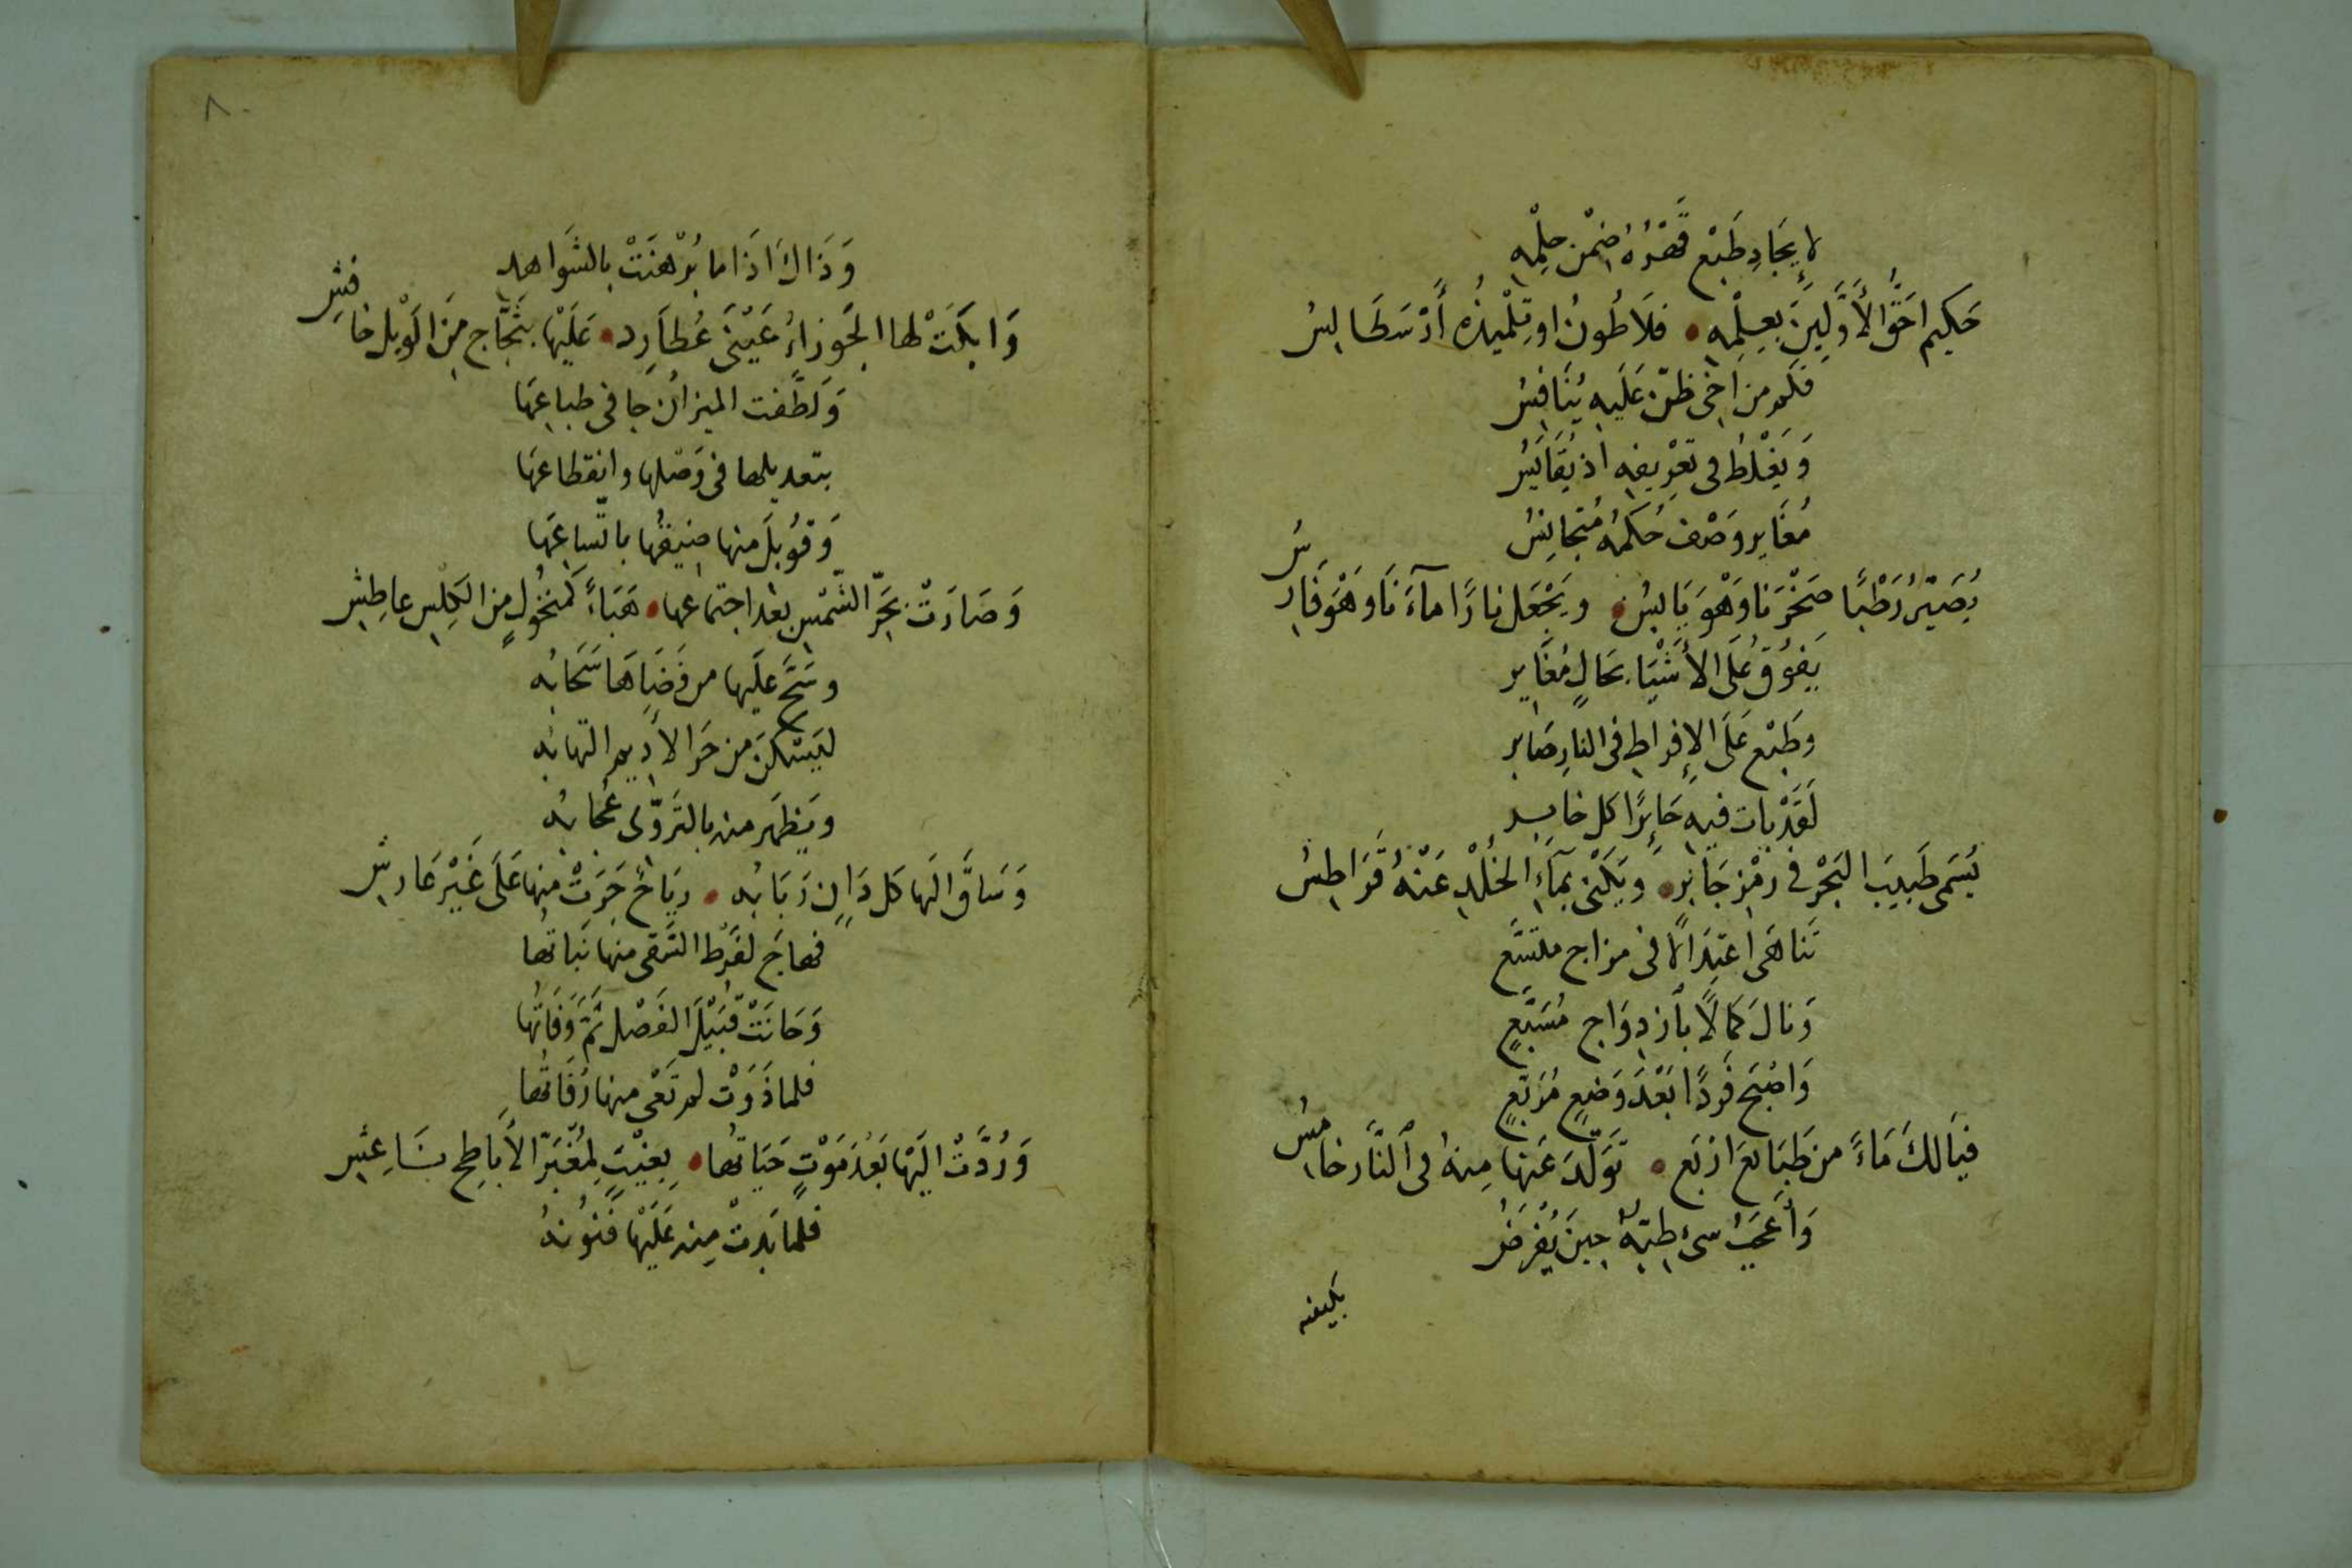 لإيجَادِ طَبْع قَهْرُهُ ضِمْنَ حِلْمِهِ
حَكِيم احَقُّ الأَوَّلِينَ بعِلْمِهِ • فلَاطُونُ او تِلْميذُه أَرْسَطَالِيسُ
فكم من اخى ظنّ عَلَيهِ يُنَافِسُ
وَيَغْلَطُ فى تعْرِيفِهِ اذ يُقَايَسُ
مُغَاير وَصْف حُكمُه مُتجانِسُ
يُصَيِّرُ رَطْبًا صَخْرَنا وَهْوَ يَابِسُ • ويَجْعَل نارًا مآءَنَا وَهْوَ فَارِسُ
يَفوُقُ عَلَى الأَشْيَا بحَالٍ مُغَاير
وطَبْع عَلَى الإِفراطِ فى النارِ صَابر
لَقَدْ بَات فيه حَائِرًا كل خابر
يُسَمى طَبيبَ البَحْرِ فى رمْز جَابر • وَيَكْنى بمَآءِ الخُلْدِ عَنْهُ قُرَاطِسُ
تَنَاهَى اعْتِدَالًا فى مزاج متسَّع
وَنالَ كمالًا بأزدِوَاج مُسَبَّعٍ
وَاصْبَحَ فَردًا بَعْدَ وَضعٍ مُرَبّعٍ
فيَالَكَ مَاءً من طَبَايَع ارْبَع • تَوَلَّدَ عَنها مِنهُ فى ٱلنَّار خامِسُ
وَأَعْجَبُ شىء طِبّهُ حِينَ يُفْرَضُ
بكيفه
٨٠
وَذَاكَ اذَا ما بُرْهنَتْ بالشَواهد
وَابكَتْ لها الجَوزاءُ عَيْنَى عُطَارِد • عَلَيْها بثجَّاج مِنَ الوَبْل خافِشِ
وَلَطَّفت الميزانُ جافى طباعِهَا
بتعديلها فى وَصْلها وانقطاعهَا
وَقوُبلَ منها ضِيقُها باتّساعِهَا
وَصَارَتْ بحَرِّ الشّمْسِ بعْدَ اجتماعها • هَبَاءً كمنْخُولٍ مِن الكِلْسِ عاطِشِ
وسَحَّ عَلَيها من فَضَاهَا سَحَابُه
ليَسْكنَ من حَرِ الأَدِيم التهابُه
ويَظهَر منه بالتَرَوّى عُجابُه
وَسَاقَ الَها كل دَانٍ رَبَابُه • رِيَاحٌ جَرَتْ منها عَلَى غَيْر عَارشِ
فهاجَ لفَرْط السَقى منها نَبَاتُها
وَحَانَتْ قُبَيْلَ الفَصْل ثَمَّ وَفَاتُها
فلما ذَوَتْ لم تَعْى منها رُفَاتُها
وَرُدَّتْ الَيْهَا بَعْدَ مَوْتٍ حَيَاتُها • بِغيْثٍ لِمُغْبَرّ الأَباطِح نَاعِشِ
فلما بَدتْ مِنه عَلَيْهَا فنُونُهُ